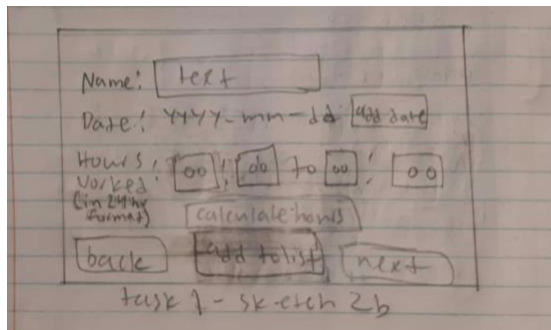 Name: text
Date: YYYY-mm-dd add date
Hours : 00 : 00 to 00 : 00
Worked:
(in 24 hr
format)
calculate hours
back add to list next
task 1 - sketch 2b